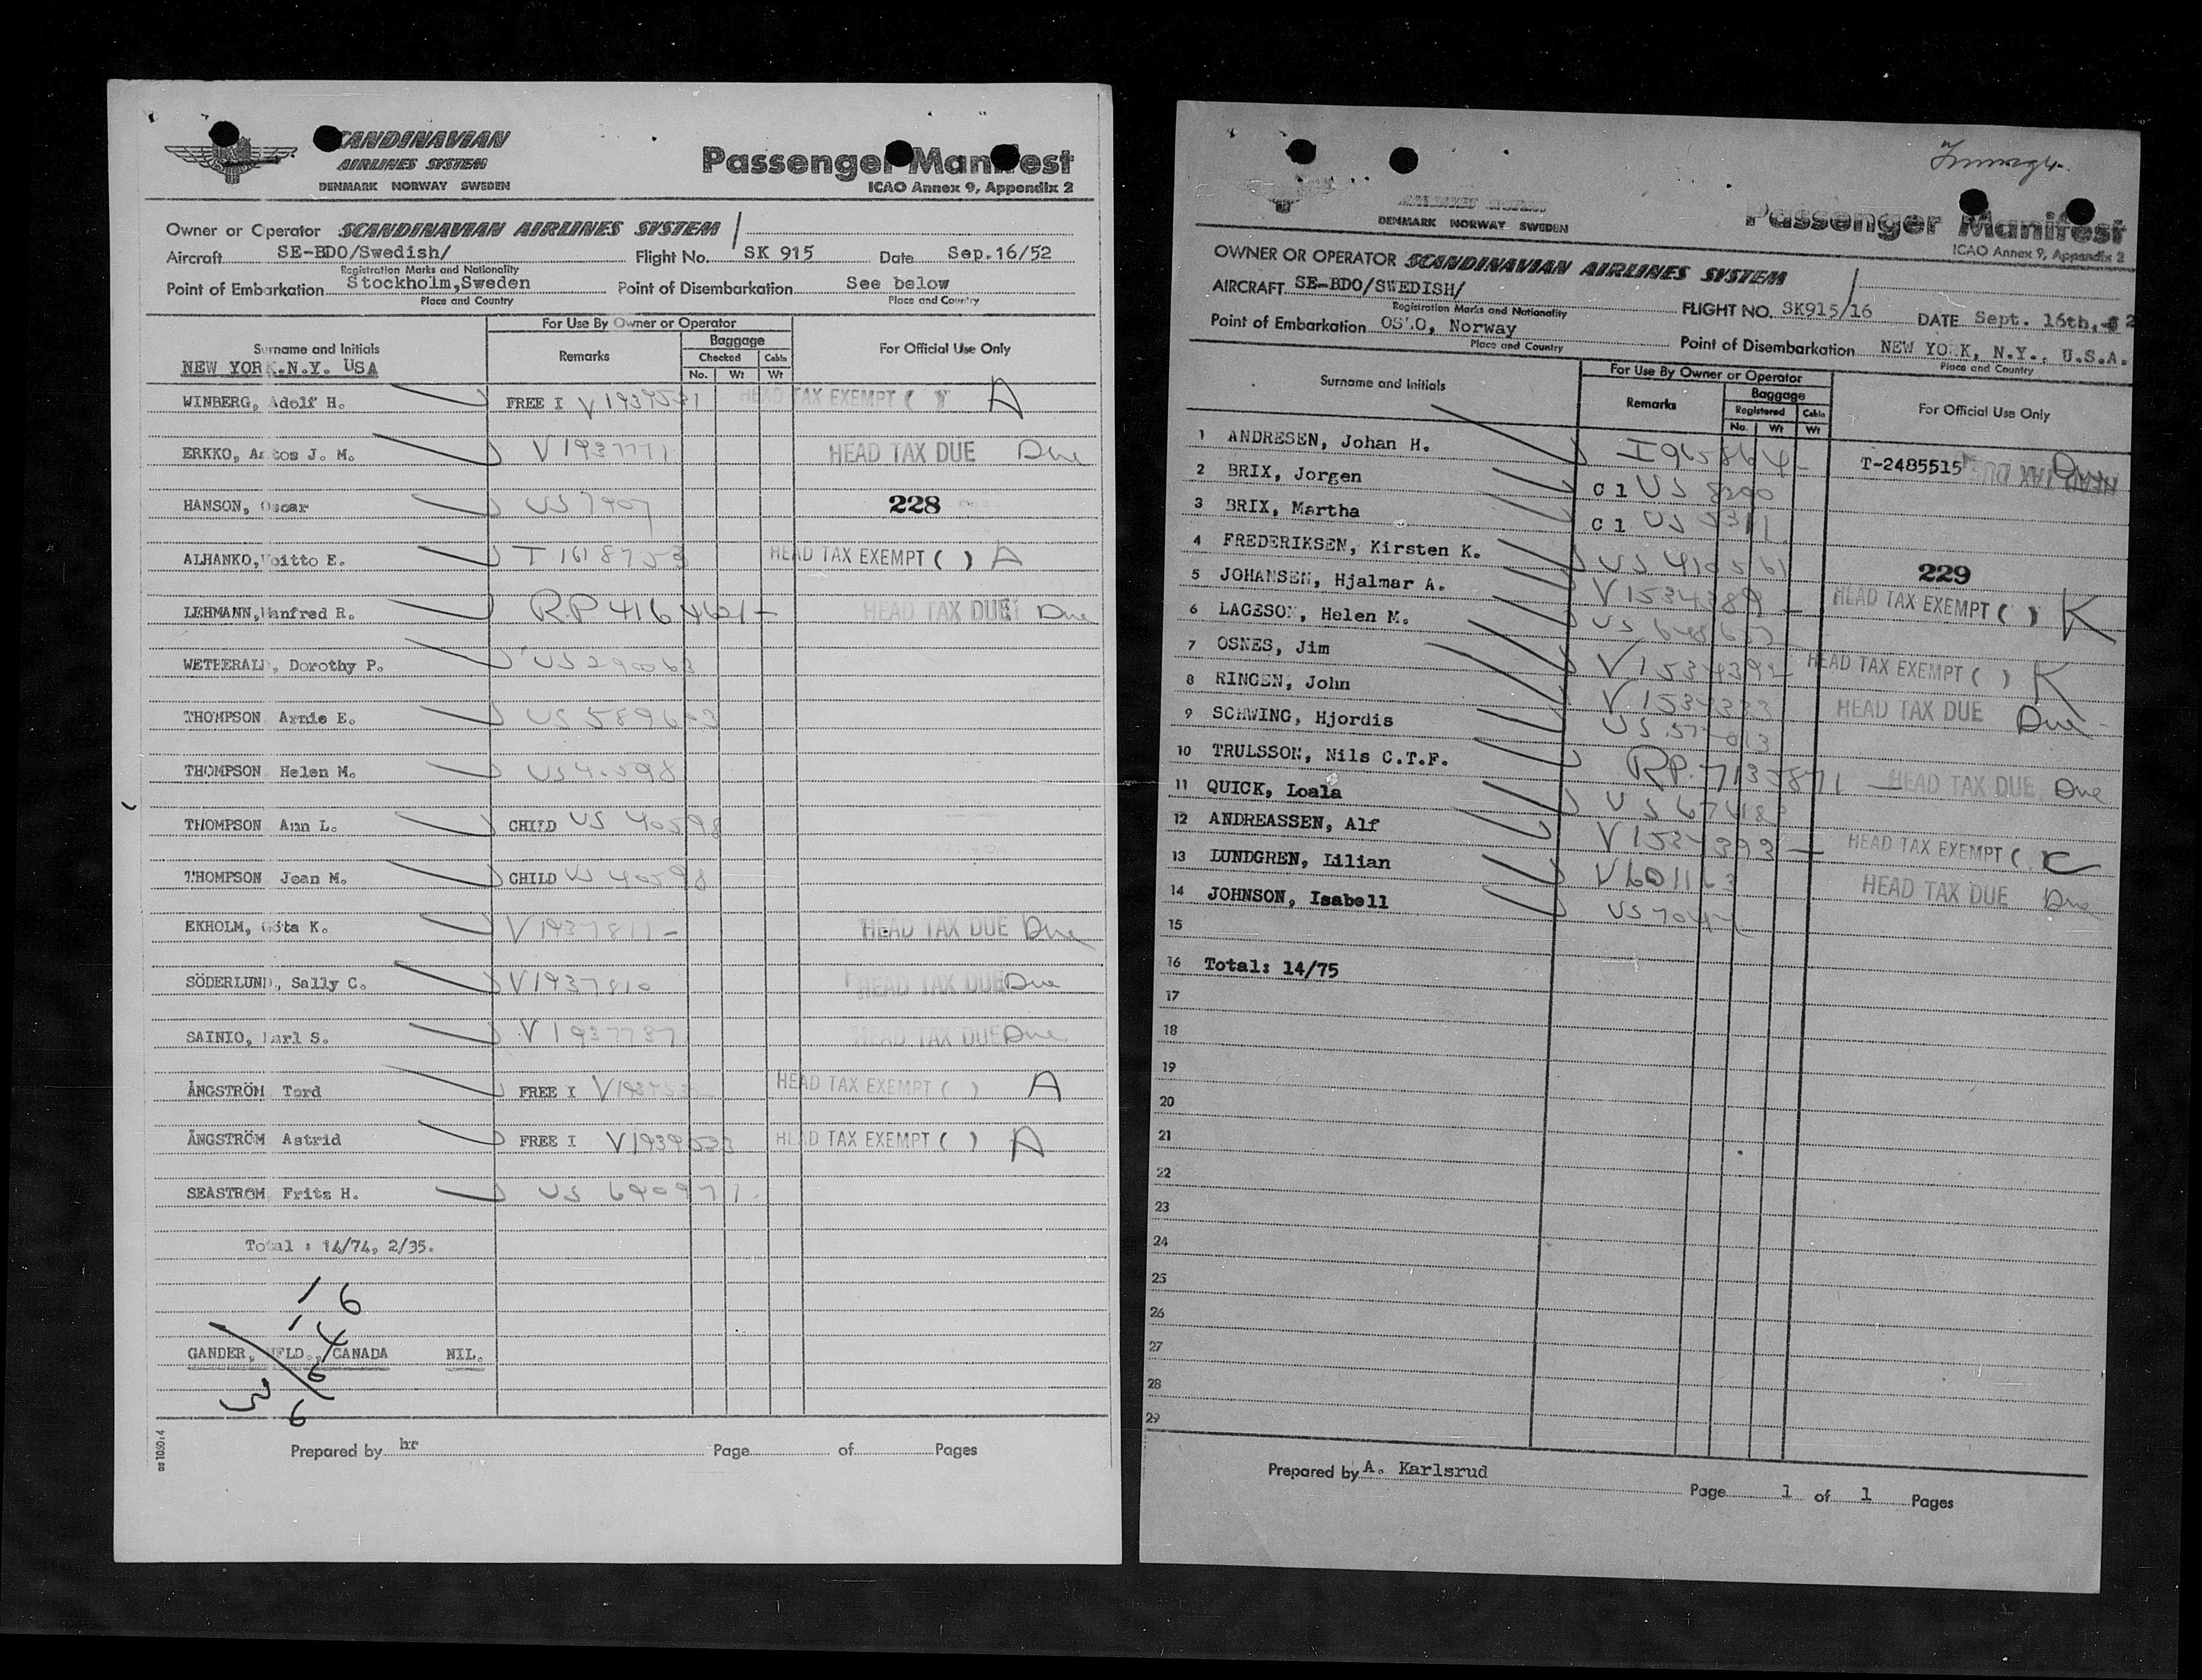 SCANDINAVIAN
AIRLINES SYSTEM
DENMARK NORWAY SWEDEN
Passenger Manifest
ICAO Annex 9, Appendix 2
Owner or Operator SCANDINAVIAN AIRLINES SYSTEM
Aircraft SE-BDO/Swedish/ Flight No. SK 915 Date Sep.16/52
Registration Marks and Nationality
Point of Embarkation Stockholm,Sweden Point of Disembarkation See below
Place and Country Place and Country
For Use By Owner or Operator
Surname and Initials Remarks Baggage For Official Use Only
Checked Cabin
No. Wt Wt
NEW YORK.N.Y. USA
WINBERG, Adolf H. FREE I HEAD TAX EXEMPT ( ) A
ERKKO, J. M. V 1937771 HEAD TAX DUE Due
HANSON, Oscar US 7907 228
ALHANKO, Voitto E. T 1618753 HEAD TAX EXEMPT ( ) A
LEHMANN, Manfred R. RP 416461 - HEAD TAX DUE Due
WETHERALD, Dorothy P. US 290063
THOMPSON Arnie E.
THOMPSON Helen M.
THOMPSON Ann L. CHILD US 40598
THOMPSON Jean M. CHILD US 40598
EKHOLM, Gösta K. V 1937811 - HEAD TAX DUE Due
SÖDERLUND, Sally C. V 1937810 HEAD TAX DUE Due
SAINIO, Karl S. V 1937737 HEAD TAX DUE Due
ÅNGSTRÖM Tord FREE I HEAD TAX EXEMPT ( ) A
ÅNGSTRÖM Astrid FREE I V1939533 HEAD TAX EXEMPT ( ) A
SEASTROM Fritz H. US 690971
Total : 14/74, 2/35.
16
14
6
GANDER, NFLD., CANADA NIL.
36
as 1050:4
Prepared by hr Page of Pages
Immig.
DENMARK NORWAY SWEDEN
Passenger Manifest
ICAO Annex 9, Appendix 2
OWNER OR OPERATOR SCANDINAVIAN AIRLINES SYSTEM
AIRCRAFT SE-BDO/SWEDISH/ FLIGHT NO. SK915/16 DATE Sept. 16th, 52
Registration Marks and Nationality
Point of Embarkation OSLO, Norway Point of Disembarkation NEW YORK, N.Y., U.S.A.
Place and Country Place and Country
For Use By Owner or Operator
Surname and Initials Remarks Baggage For Official Use Only
Registered Cabin
No. Wt Wt
1 ANDRESEN, Johan H. I 965864 - T-2485515 HEAD TAX DUE Due
2 BRIX, Jorgen C 1 US 8290
3 BRIX, Martha C 1 US 5311
4 FREDERIKSEN, Kirsten K. US 410561 229
5 JOHANSEN, Hjalmar A. V 1534389 - HEAD TAX EXEMPT ( ) K
6 LAGESON, Helen M.
7 OSNES, Jim V 1534392 HEAD TAX EXEMPT ( ) K
8 RINGEN, John V 1534333 HEAD TAX DUE Due
9 SCHWING, Hjordis
10 TRULSSON, Nils C.T.F. RP. 7135871 - HEAD TAX DUE Due
11 QUICK, Loala
12 ANDREASSEN, Alf V 1534393 - HEAD TAX EXEMPT ( ) K
13 LUNDGREN, Lilian V 601163 HEAD TAX DUE Due
14 JOHNSON, Isabell
15
16 Total: 14/75
17
18
19
20
21
22
23
24
25
26
27
28
29
Prepared by A. Karlsrud Page 1 of 1 Pages